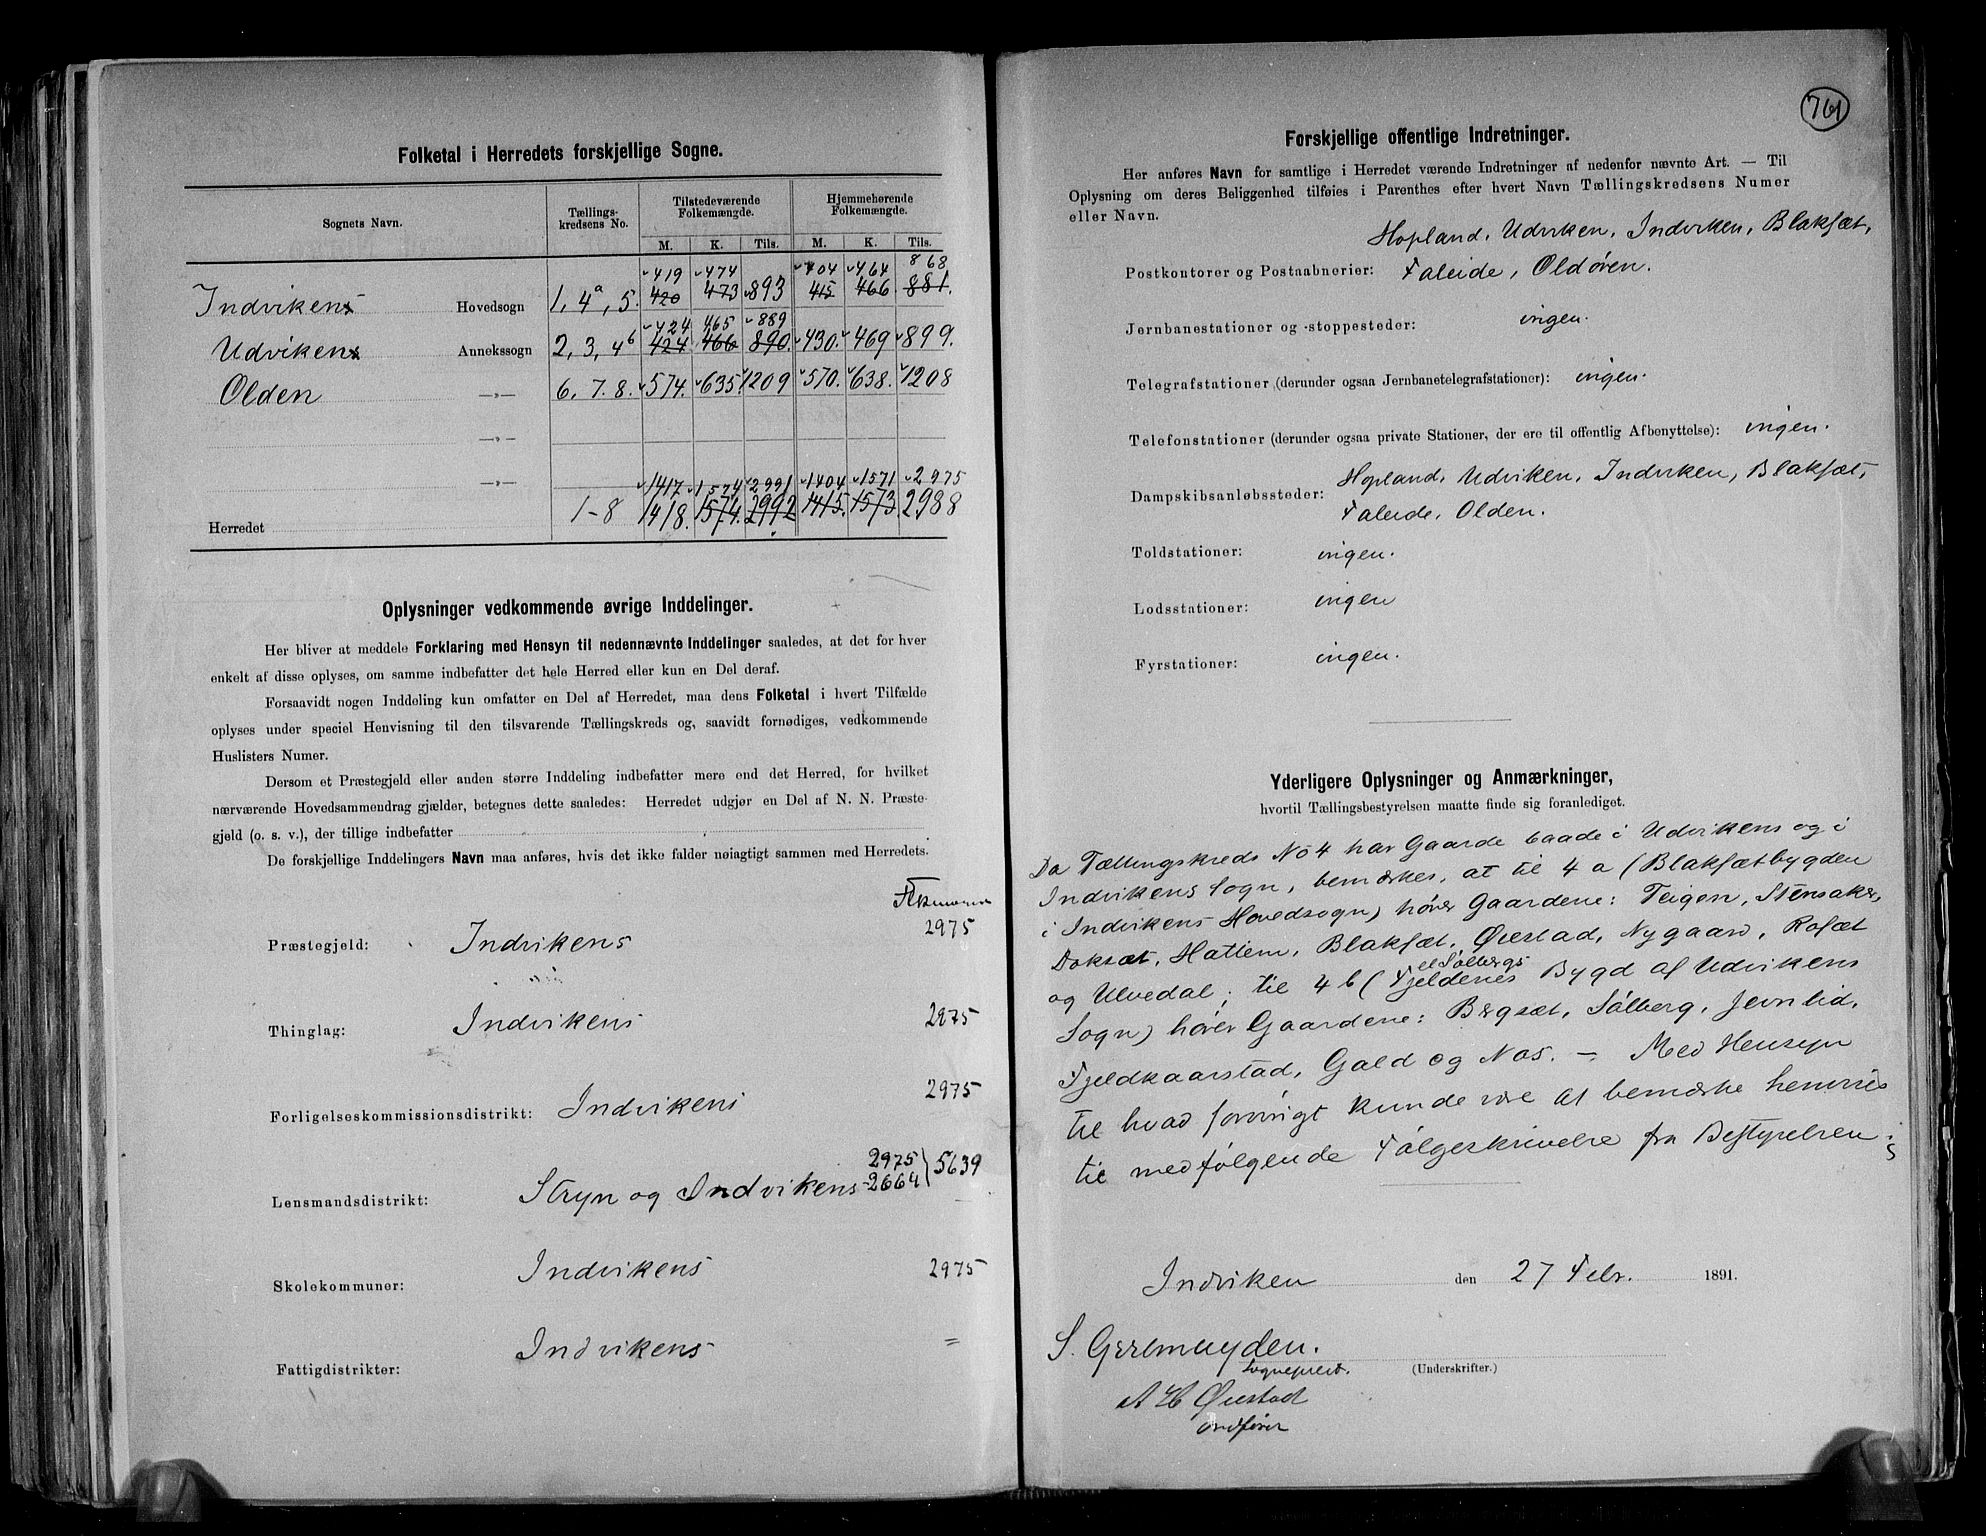 Folketal i Herredets forskjellige Sogne.
Sognets Navn.
Tællings-
kredsens No.
Tilstedeværende
Folkemængde.
Hjemmehørende
Folkemængde.
M. K. Tils. M. K. Tils.
419 474 404 464 868
Indvikens Hovedsogn 1, 4a, 5. 420 473 893 415 466 881.
424 465 889
Udvikens Annekssogn 2, 3, 4b 424 466 890. 430. 469 899.
Olden —„— 6. 7. 8. 574. 635. 1209 570. 638. 1208
—„—
—„—
1417 1574 2991 1404 1571 2975
Herredet 1-8 1418. 1574. 2992 1415. 1573. 2988
Oplysninger vedkommende øvrige Inddelinger.
Her bliver at meddele Forklaring med Hensyn til nedennævnte Inddelinger saaledes, at det for hver
enkelt af disse oplyses, om samme indbefatter det hele Herred eller kun en Del deraf.
Forsaavidt nogen Inddeling kun omfatter en Del af Herredet, maa dens Folketal i hvert Tilfælde
oplyses under speciel Henvisning til den tilsvarende Tællingskreds og, saavidt fornødiges, vedkommende
Huslisters Numer.
Dersom et Præstegjeld eller anden større Inddeling indbefatter mere end det Herred, for hvilket
nærværende Hovedsammendrag gjælder, betegnes dette saaledes: Herredet udgjør en Del af N. N. Præste-
gjeld (o. s. v.), der tillige indbefatter
De forskjellige Inddelingers Navn maa anføres, hvis det ikke falder nøiagtigt sammen med Herredets.
Præstegjeld: Indvikens 2975
Thinglag: Indvikens 2975
Forligelseskommissionsdistrikt: Indvikens 2975
Lensmandsdistrikt: Stryn og Indvikens 2975 2664 } 5639
Skolekommuner: Indvikens 2975
Fattigdistrikter: Indvikens =
761
Forskjellige offentlige Indretninger.
Her anføres Navn for samtlige i Herredet værende Indretninger af nedenfor nævnte Art. — Til
Oplysning om deres Beliggenhed tilføies i Parenthes efter hvert Navn Tællingskredsens Numer
eller Navn.
Hopland, Udviken, Indviken, Blaksæt,
Postkontorer og Postaabnerier: Faleide, Oldøren.
Jernbanestationer og -stoppesteder: ingen.
Telegrafstationer (derunder ogsaa Jernbanetelegrafstationer): ingen.
Telefonstationer (derunder ogsaa private Stationer, der ere til offentlig Afbenyttelse): ingen.
Hopland, Udviken, Indviken, Blaksæt,
Dampskibsanløbssteder:
Faleide, Olden.
Toldstationer: ingen.
Lodsstationer: ingen
Fyrstationer: ingen.
Yderligere Oplysninger og Anmærkninger,
hvortil Tællingsbestyrelsen maatte finde sig foranlediget.
Da Tællingskreds No 4 har Gaarde baade i Udvikens og i
Indvikens Sogn, bemærkes, at til 4 a (Blaksætbygden
i Indvikens Hovedsogn) hører Gaardene: Teigen, Stensaker,
Doksæt, Hattem, Blaksæt, Ørestad, Nygaard, Rosæt
el Sølbergs
og Ulvedal; til 4 b (Fjeldenes Bygd af Udvikens
Sogn) hører Gaardene: Bergsæt, Sølberg, Jevnlid,
Fjeldkaarstad, Gald og Nos. — Med Hensyn
til hvad forøvrigt kunde være at bemærke henvises
til medfølgende Følgeskrivelse fra Bestyrelsen.
Indviken den 27 Febr. 1891.
S. Geelmuyden.
Sogneprest. (Underskrifter.)
A H Ørestad
ordfører